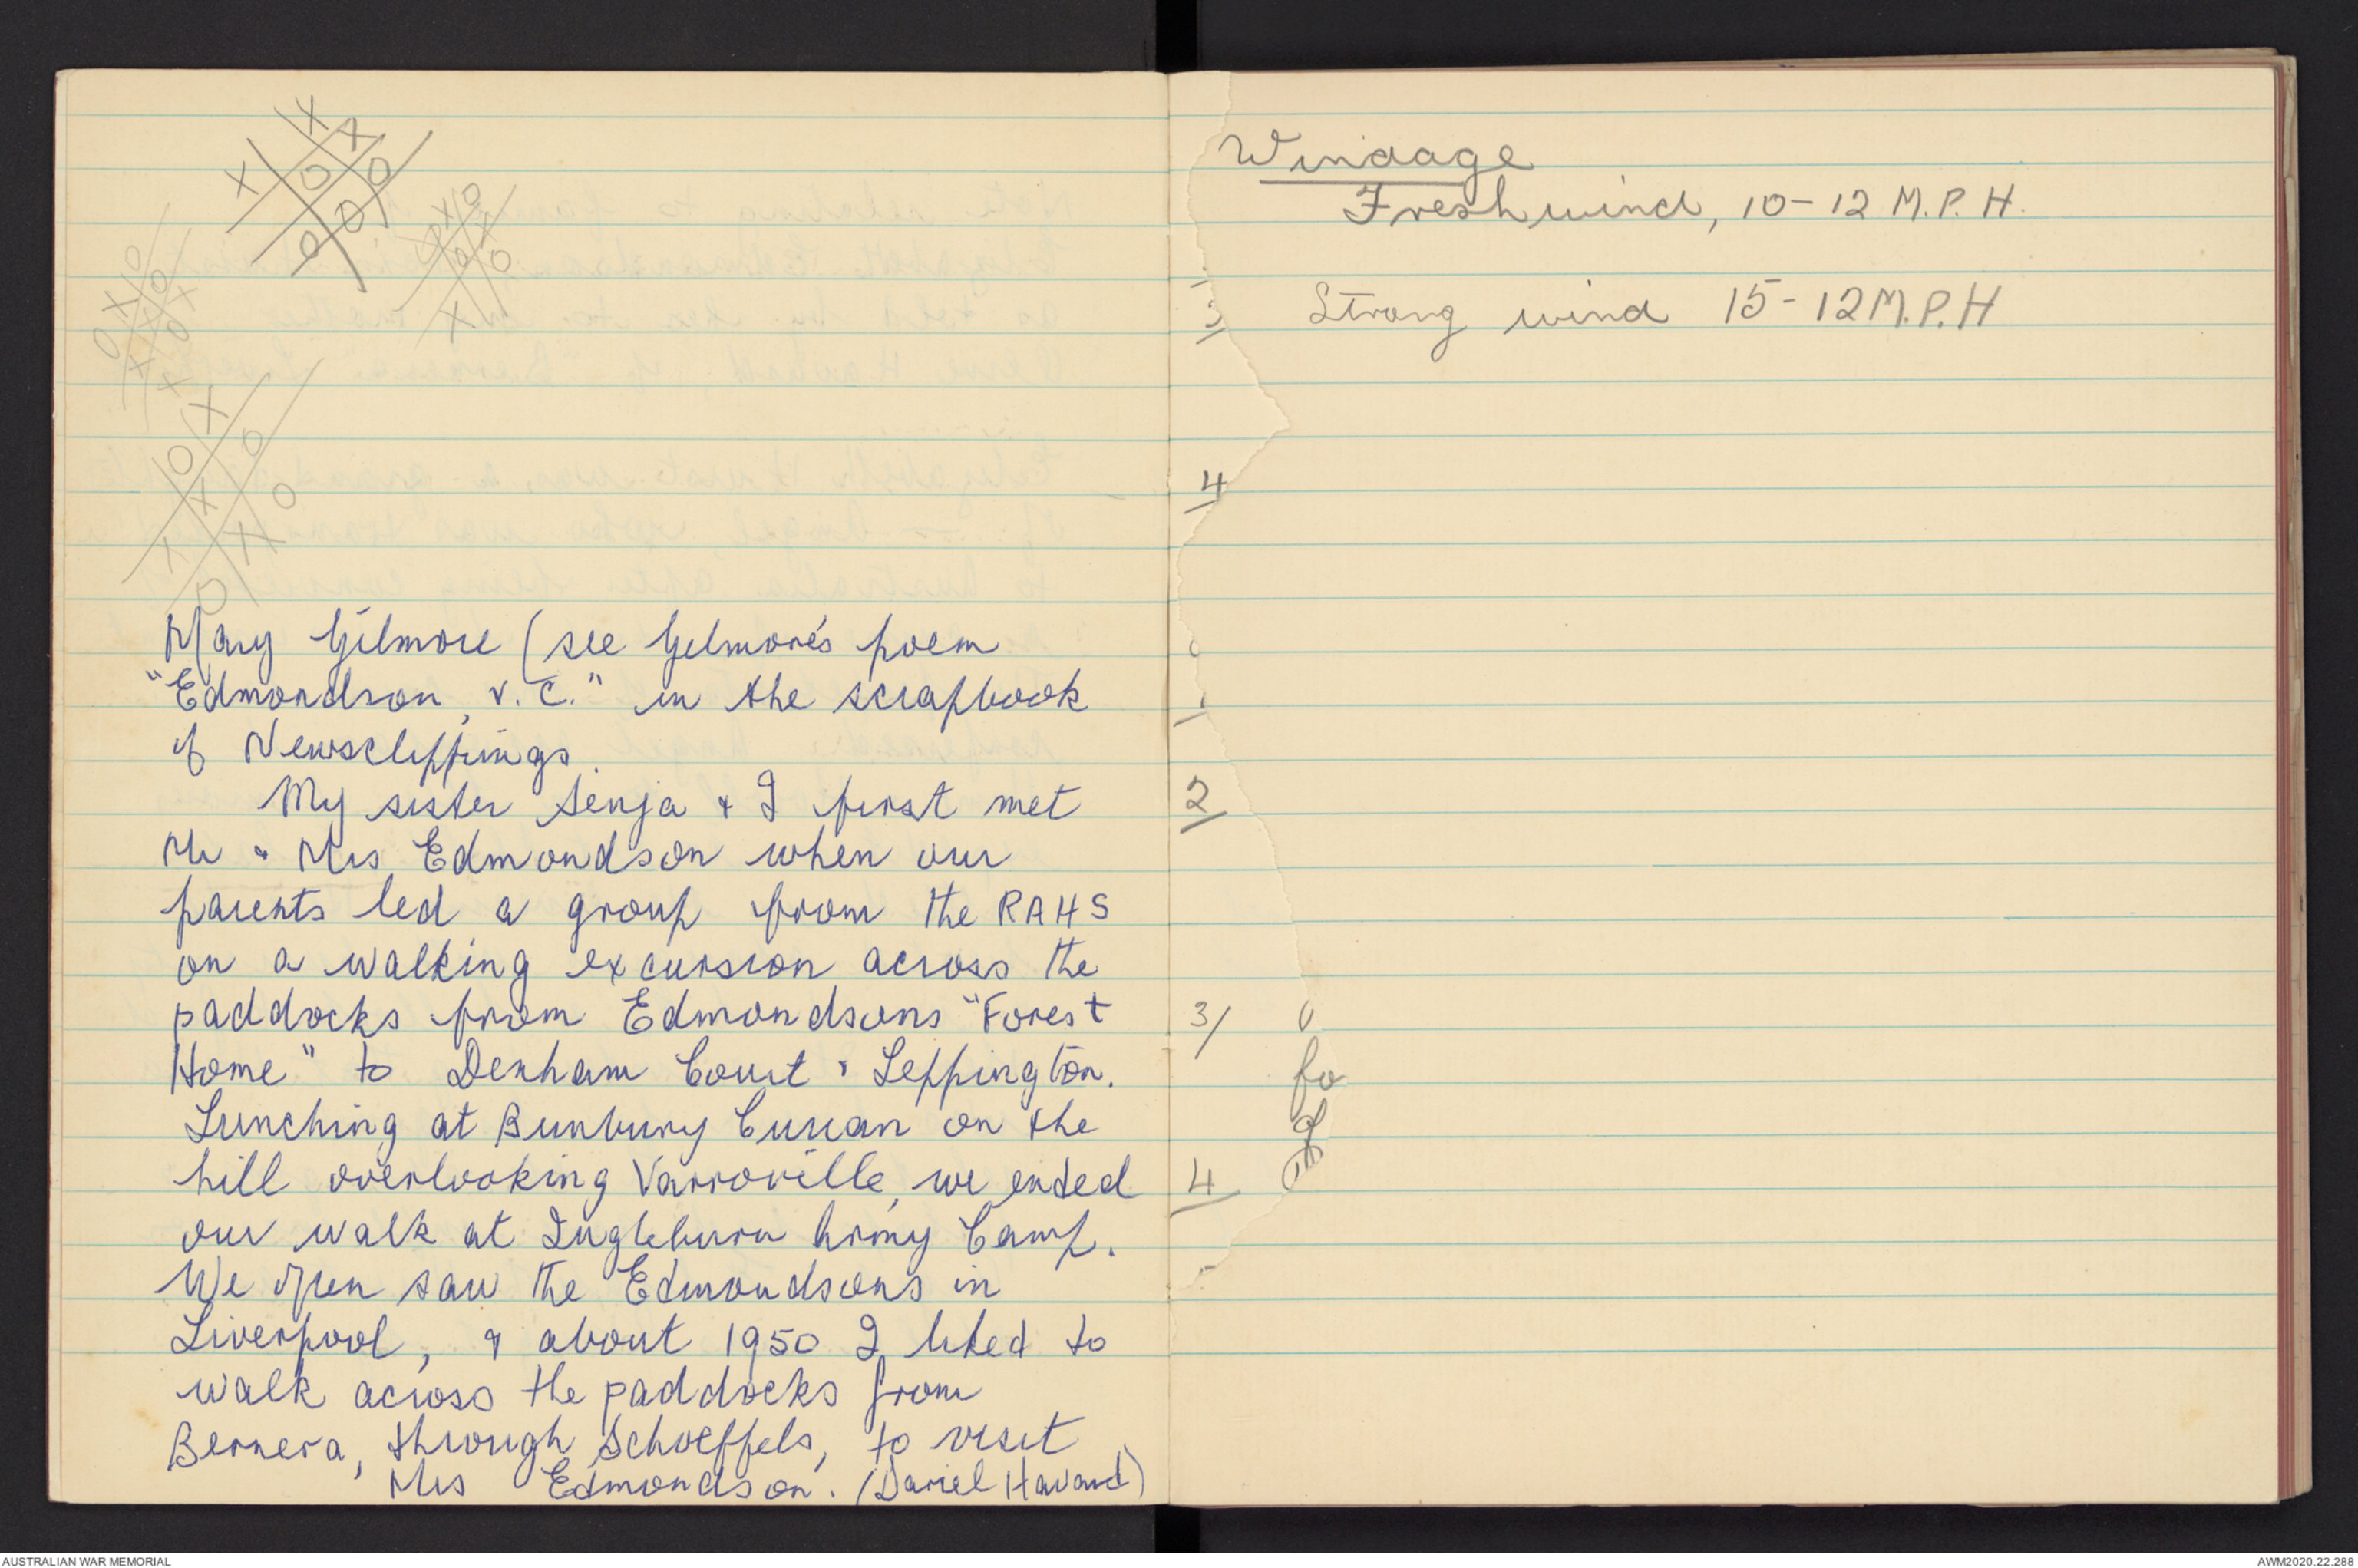 Mary Gilmore (see Gilmore's poem
"Edmondson, V.C." in the scrapbook
of Newsclippings.
My sister Senja & I first met
Mr & Mrs Edmondson when our
parents led a group from the RAHS
on a walking excursion across the
paddocks from Edmondsons "Forest
Home" to Denham Court & Leppington.
Lunching at Bunbury Curran on the
hill overlooking Varroville, we ended
our walk at Ingleburn Army Camp.
We often saw the Edmondsons in
Liverpool, & about 1950 I liked to
walk across the paddocks from
Bernera, through Schoeffels, to visit
Mrs Edmondson. (Dariel Havard)
Windage
Fresh wind, 10-12 M.P.H.
Strong wind 15-12 M.P.H
3
4
2
3/
fo
4
AUSTRALIAN WAR MEMORIAL
AWM2020.22.288